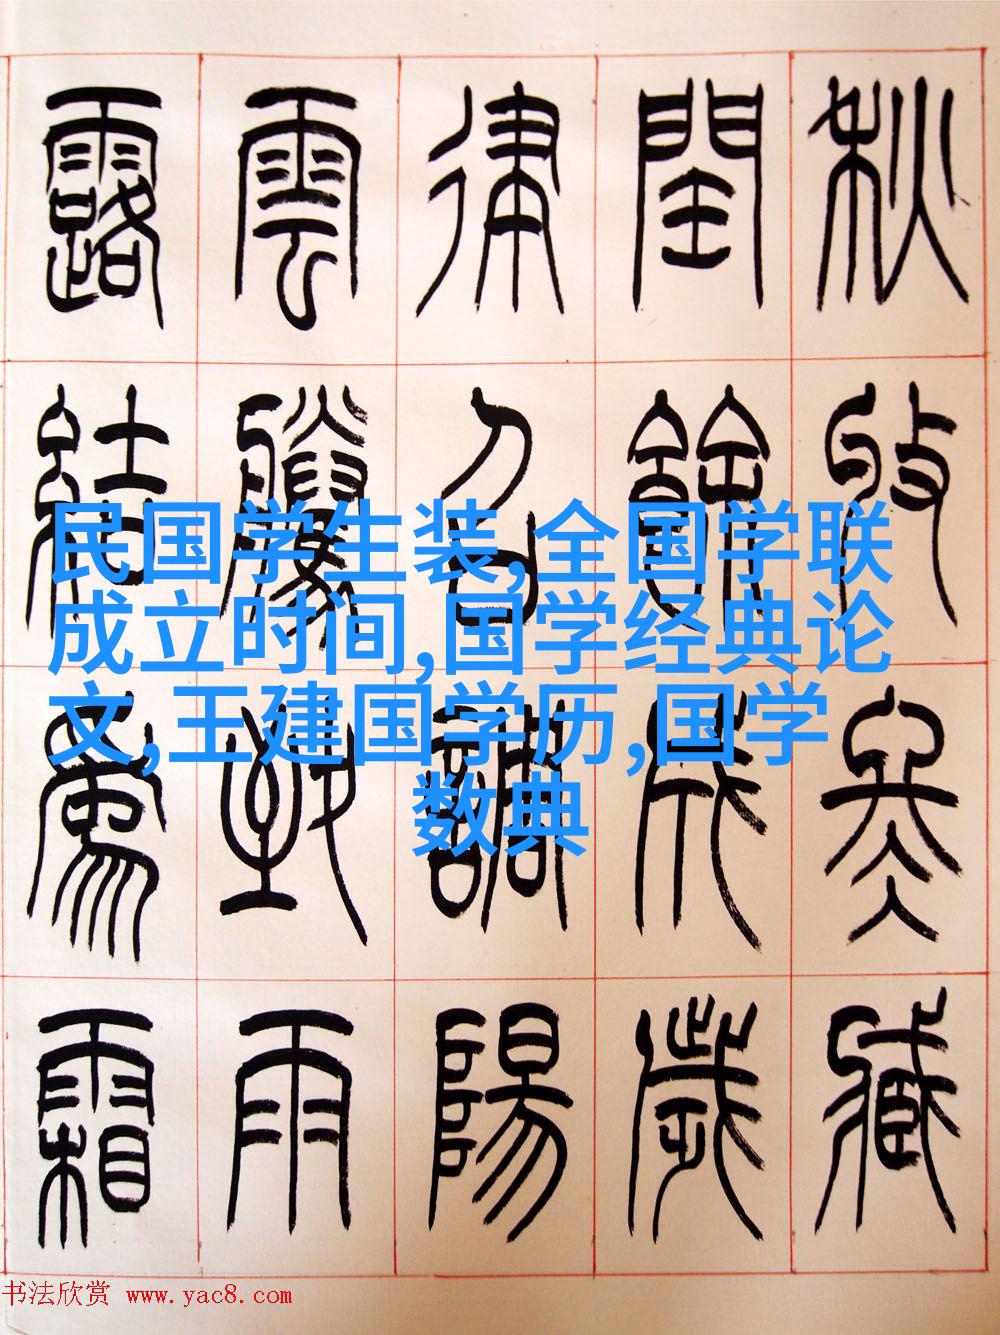 秋收冬藏
閏餘成歲
律召調陽
雲騰致雨
露結爲霜
民国学生装,全国学联
成立时间,国学经典论
文,王建国学历,国学
数典
书法欣赏 www.yac8.com